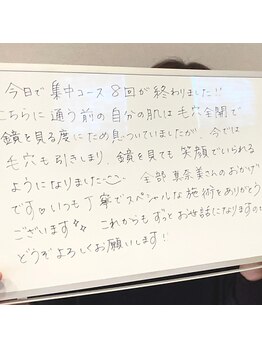 今日で集中コース8回が終わりました!!
こちらに通う前の自分の肌は毛穴全開で
鏡を見る度にため息ついていましたが、今では
毛穴も引きしまり、鏡を見ても笑顔でいられる
ようになりました 全部真奈美さんのおかげ
です。いつも丁寧でスペシャルな施術をありがとう
ございます これからもずっとお世話になりますので
どうぞよろしくお願いします!